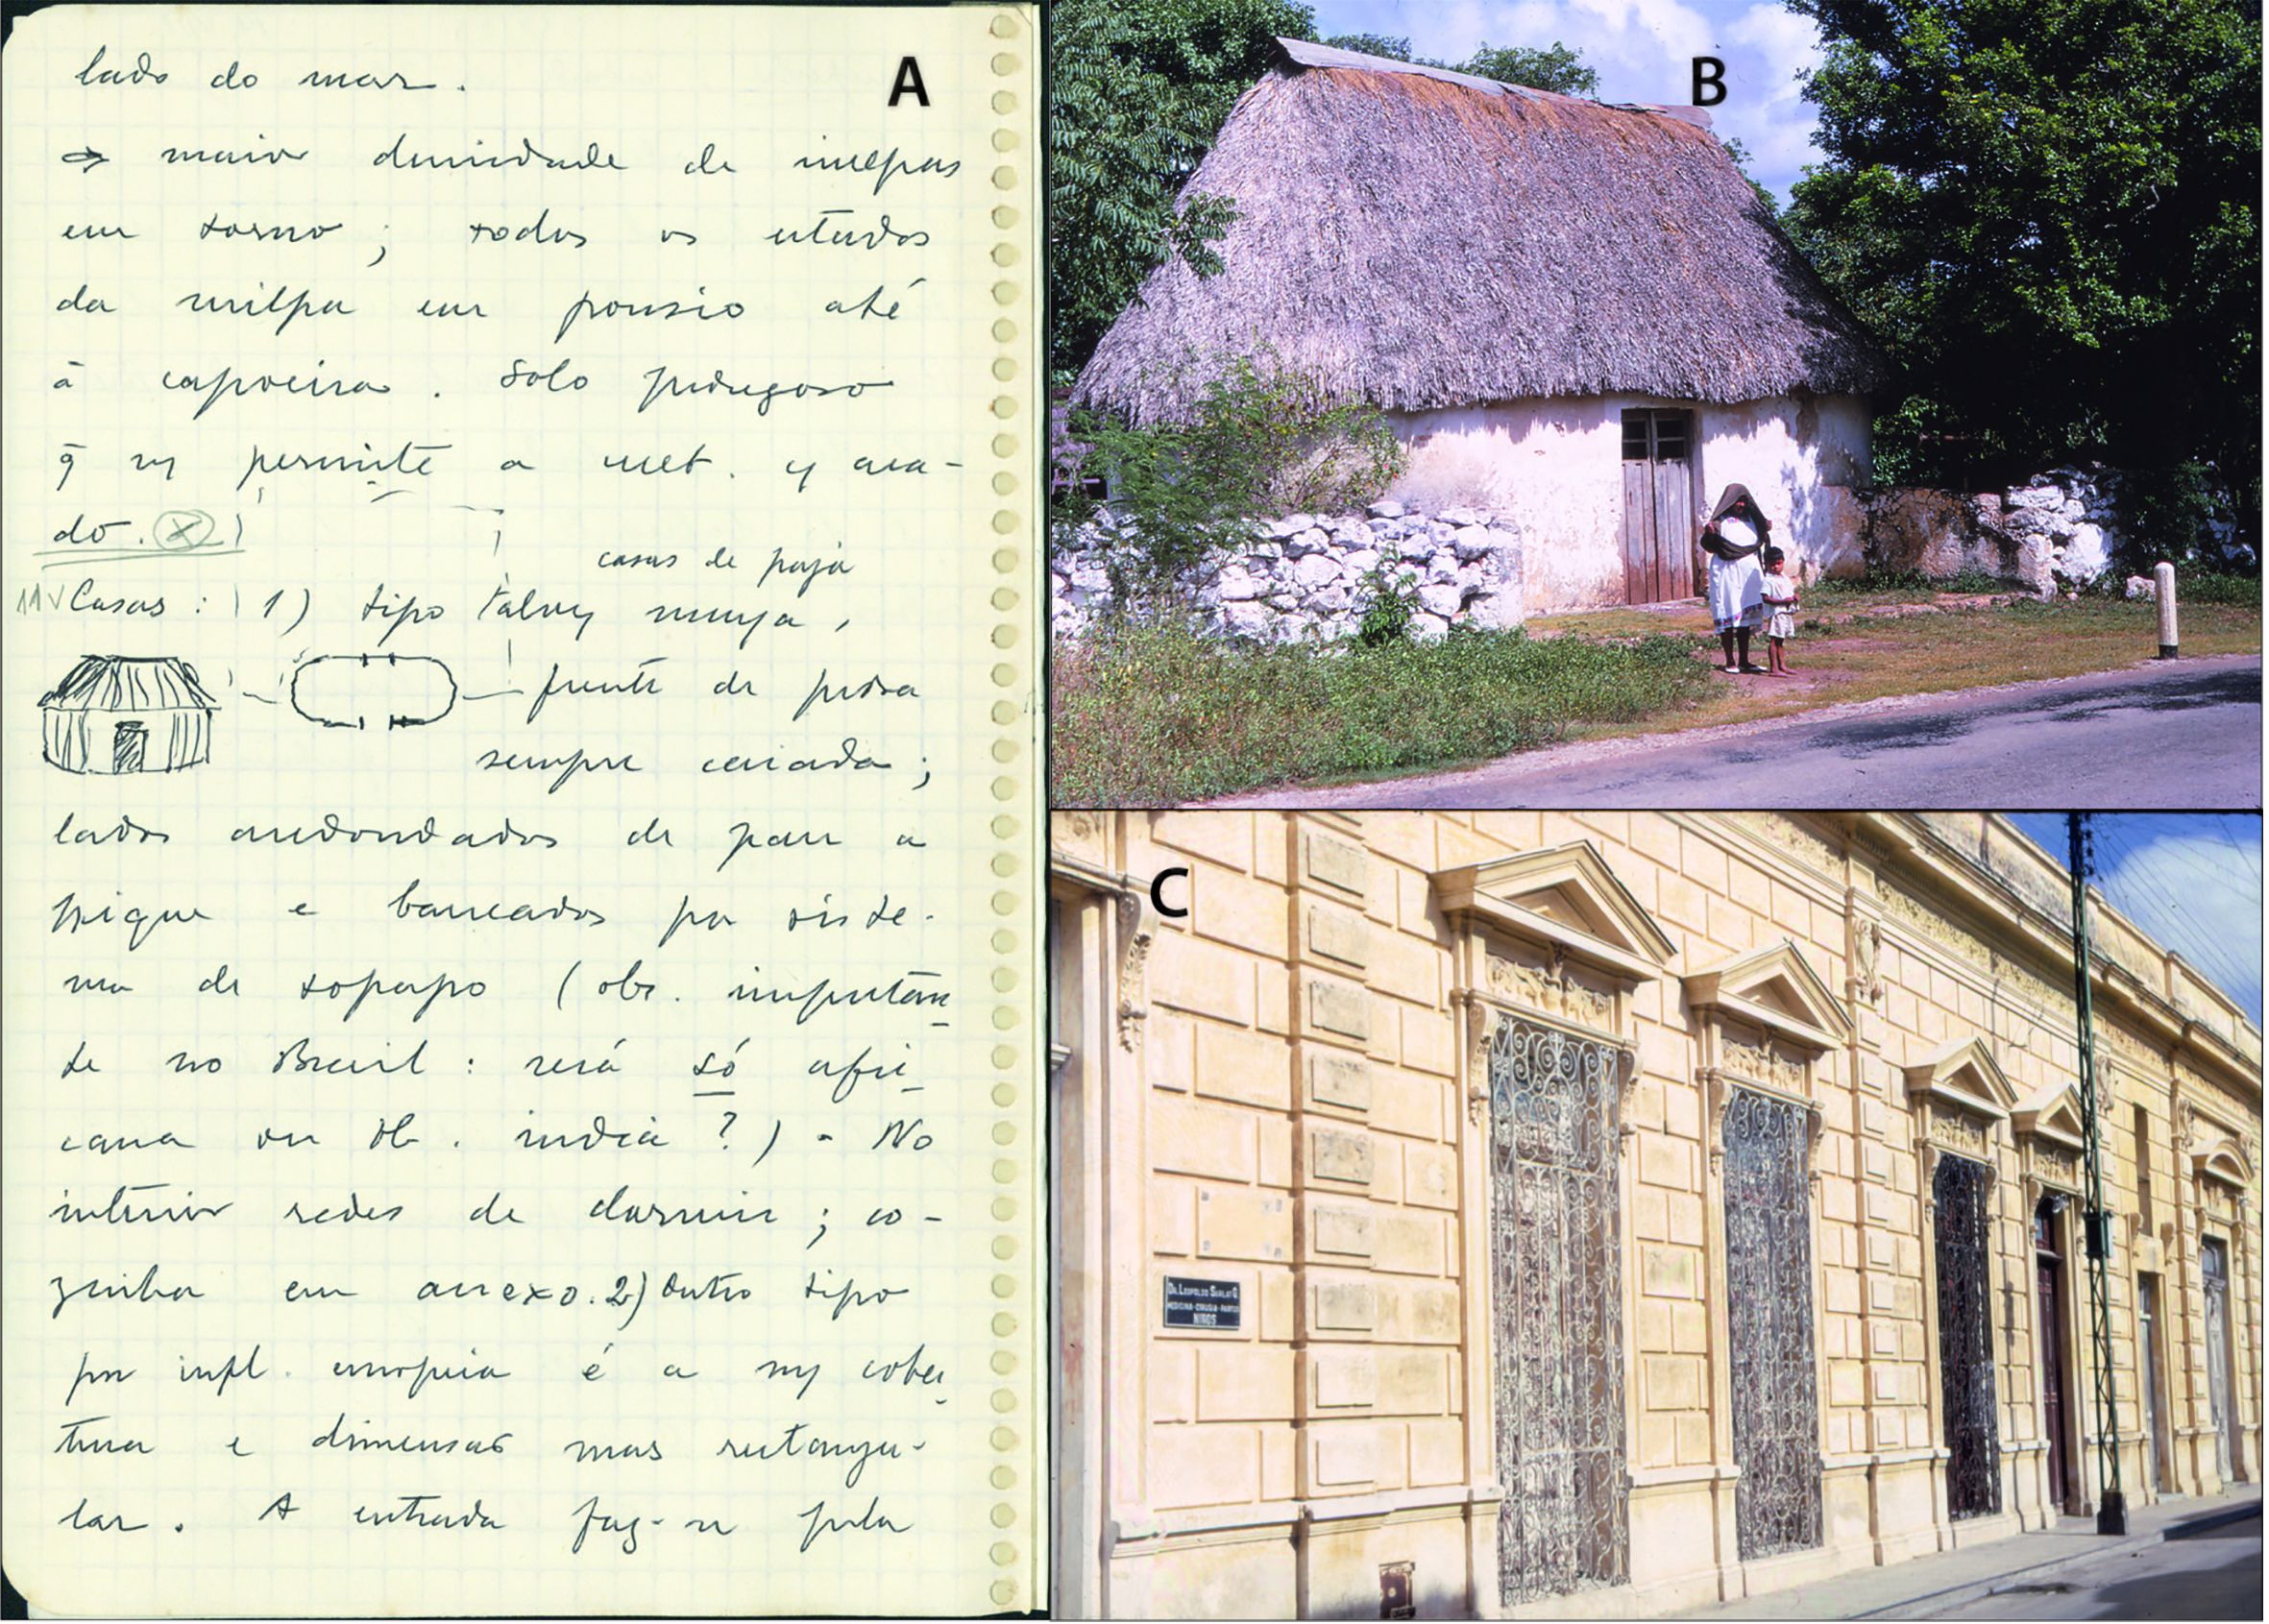 lado do mar.
A
⇒ maior densidade de milpas
em torno; todos os estados
da milpa em pousio até
à capoeira. Solo pedregoso
q̄ permite a
do. (x)
casas de paja
11 √ Casas: 1) tipo talvez maya,
frente de pedra
sempre caiada;
lados arredondados de pau a
pique e barreados por siste-
ma de sopapo (obs. importan
te no Brasil: será só afri
cana ou tb. india?) - No
interior redes de dormir; co-
zinha em anexo. 2) Outro tipo
por infl. europeia é a cober
tura e dimensão mas rectangu-
lar. A entrada faz-se pela
B
C
DR. LEOPOLDO
MEDICINA-CIRUGIA-PARTOS
NIÑOS